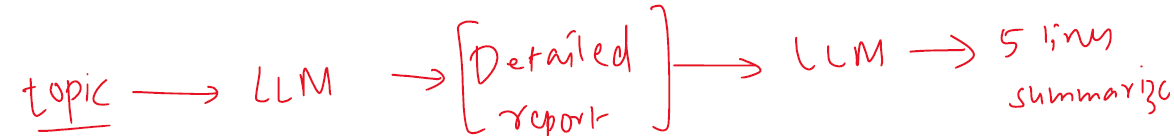 topic → LLM → [Detailed report] → LLM → 5 lines summarize